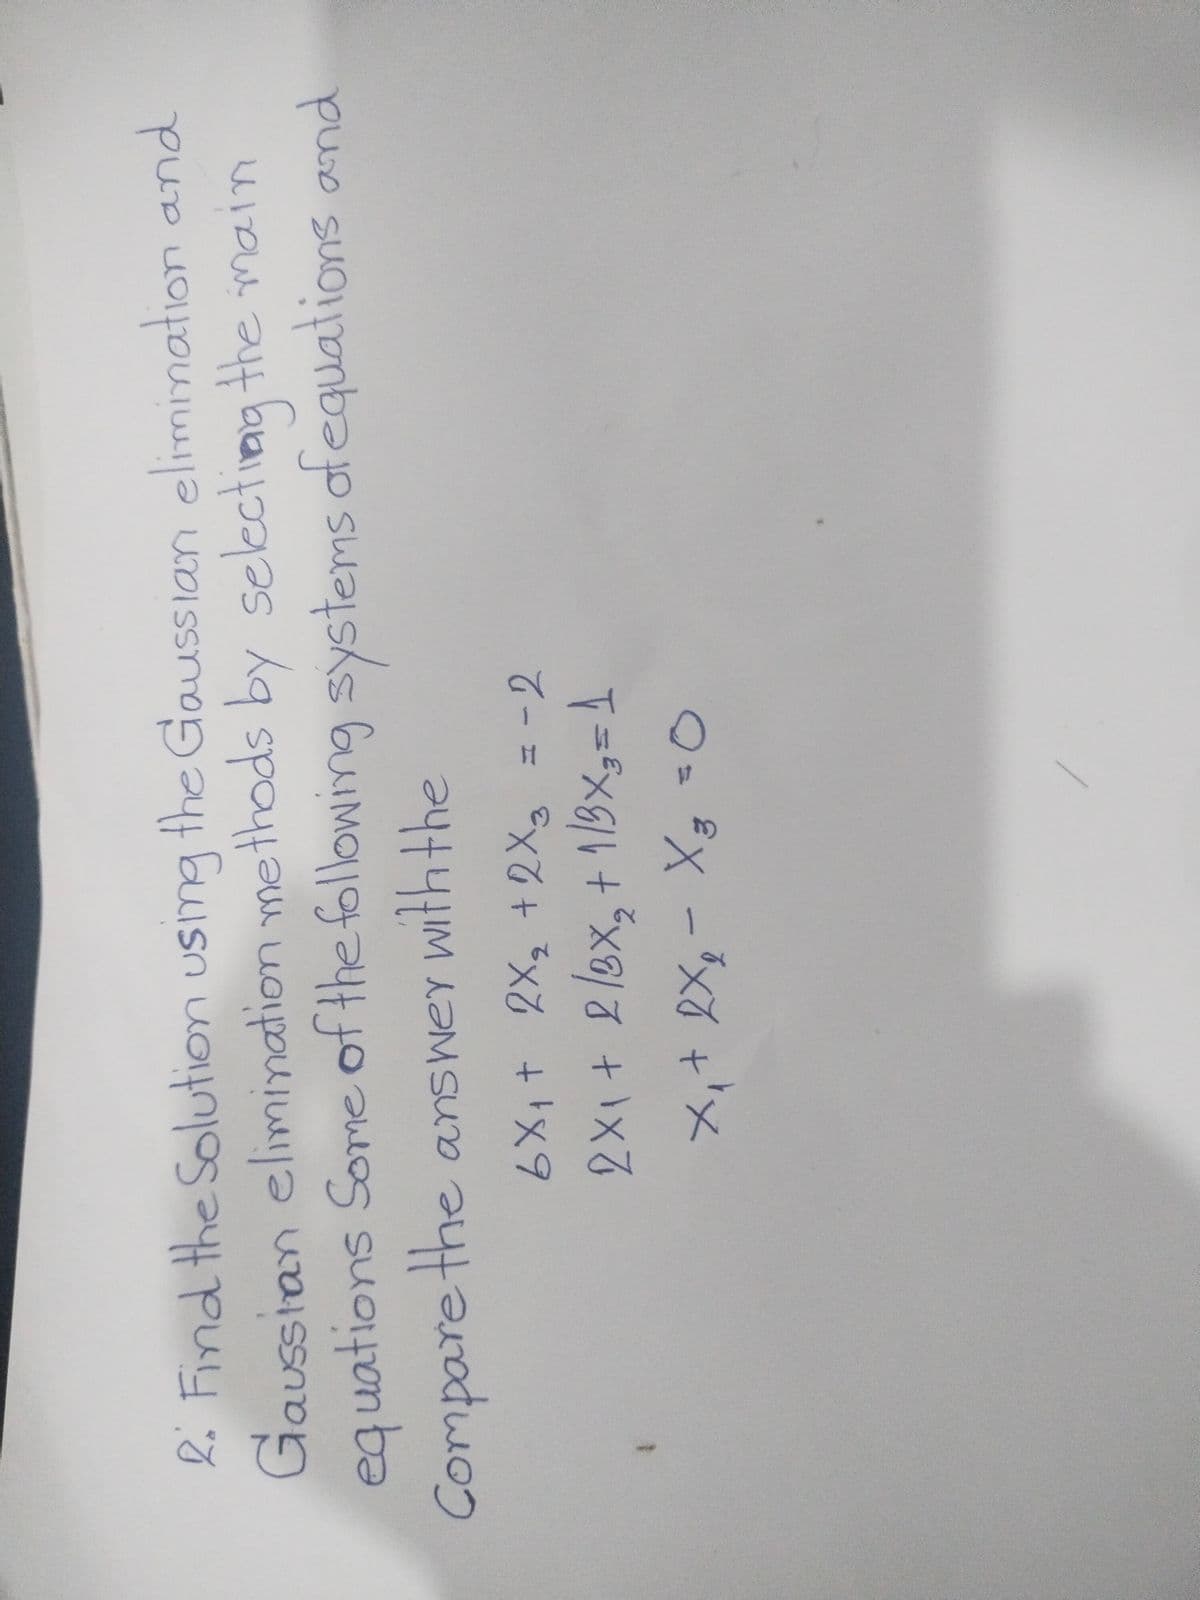 2. Find the Solution using the Gaussian elimination and
Gaussian elimination methods by selecting the main
equations Some of the following systems of equations and
Compare the answer with the
6X₁ + 2X₂ + 2X₃ = -2
2X₁ + 2/3X₂ + 1/3X₃ = 1
X₁ + 2X₂ - X₃ = 0